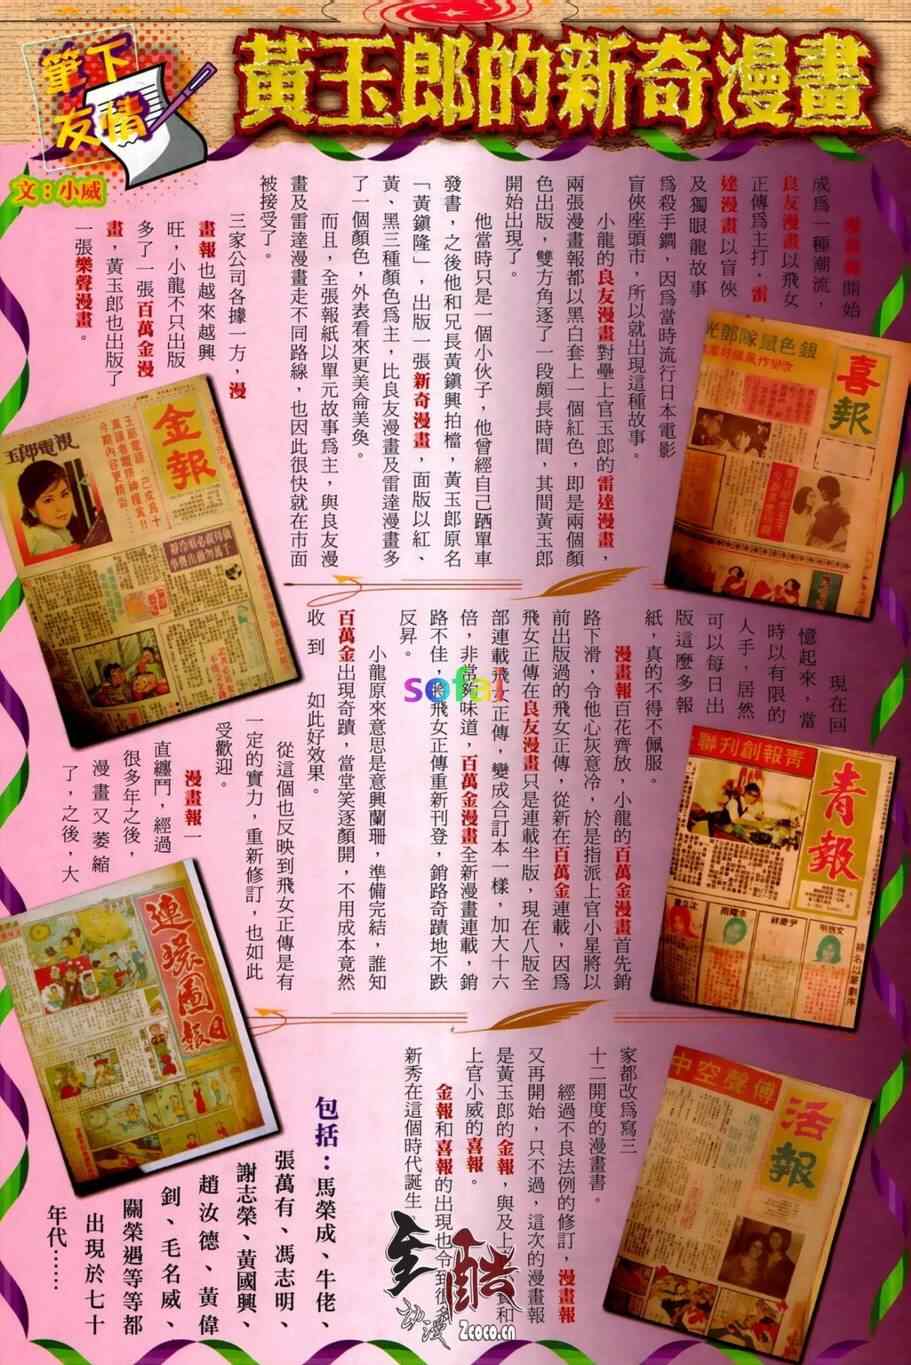 筆下
友情
黃玉郎的新奇漫畫
文：小威
漫畫報開始
成爲一種潮流，
良友漫畫以飛女
正傳爲主打，雷
達漫畫以盲俠
及獨眼龍故事
爲殺手鐧，因爲當時流行日本電影
盲俠座頭市，所以就出現這種故事。
小龍的良友漫畫對壘上官玉郎的雷達漫畫，
兩張漫畫報都以黑白套上一個紅色，即是兩個顏
色出版，雙方角逐了一段頗長時間，其間黃玉郎
開始出現了。
他當時只是一個小伙子，他曾經自己踏單車
發書，之後他和兄長黃鎮興拍檔，黃玉郎原名
「黃鎮隆」，出版一張新奇漫畫，面版以紅、
黃、黑三種顏色爲主，比良友漫畫及雷達漫畫多
了一個顏色，外表看來更美侖美奐。
而且，全張報紙以單元故事爲主，與良友漫
畫及雷達漫畫走不同路線，也因此很快就在市面
被接受了。
三家公司各據一方，漫
畫報也越來越興
旺，小龍不只出版
多了一張百萬金漫
畫，黃玉郎也出版了
一張樂聲漫畫。
現在回
憶起來，當
時以有限的
人手，居然
可以每日出
版這麼多報
紙，真的不得不佩服。
漫畫報百花齊放，小龍的百萬金漫畫首先銷
路下滑，令他心灰意冷，於是指派上官小星將以
前出版過的飛女正傳，從新在百萬金連載，因爲
飛女正傳在良友漫畫只是連載半版，現在八版全
部連載飛女正傳，變成合訂本一樣，加大十六
倍，非常夠味道，百萬金漫畫全新漫畫連載，銷
路不佳，將飛女正傳重新刊登，銷路奇蹟地不跌
反昇。
小龍原來意思是意興闌珊，準備完結，誰知
百萬金出現奇蹟，當堂笑逐顏開，不用成本竟然
收到如此好效果。
從這個也反映到飛女正傳是有
一定的實力，重新修訂，也如此
受歡迎。
漫畫報一
直纏鬥，經過
很多年之後，
漫畫又萎縮
了，之後，大
家都改爲寫三
十二開度的漫畫書。
經過不良法例的修訂，漫畫報
又再開始，只不過，這次的漫畫報
是黃玉郎的金報，與及上官寶和
上官小威的喜報。
金報和喜報的出現也令到很多
新秀在這個時代誕生
包括：馬榮成、牛佬、
張萬有、馮志明、
謝志榮、黃國興、
趙汝德、黃偉
釗、毛名威、
關榮遇等等都
出現於七十
年代……
銀色鼠隊鄧光
喜報
金報
玉郎電視
青報創刊號
青報
連環圖日報
傅聲空中
活報
sofal
全酷
动漫
2coco.cn